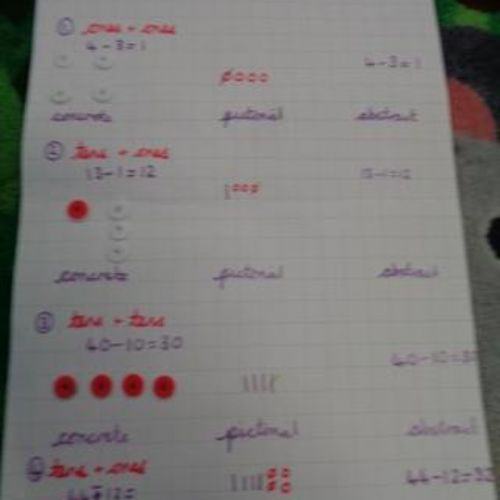 ① ones + ones
4 - 3 = 1
4 - 3 = 1
concrete pictorial abstract
② tens + ones
13 - 1 = 12
13 - 1 = 12
concrete pictorial abstract
③ tens + tens
40 - 10 = 30
40 - 10 = 30
concrete pictorial abstract
④ tens + ones
44 - 12 = 32